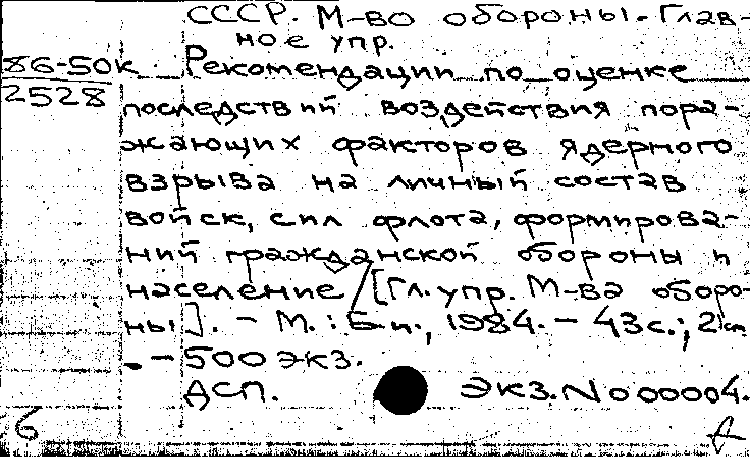 СССР. М-во обороны. Глав-
ное упр.
86-50к
2528
Рекомендации по оценке
последствий воздействия пора-
жающих факторов ядерного
взрыва на личный состав
войск, сил флота, формирова-
ний гражданской обороны и
население / [Гл. упр. М-ва оборо-
ны]. - М.: Б.и., 1984. - 43 с.; 21 см
. - 500 экз.
ДСП. Экз. No 00004.
6